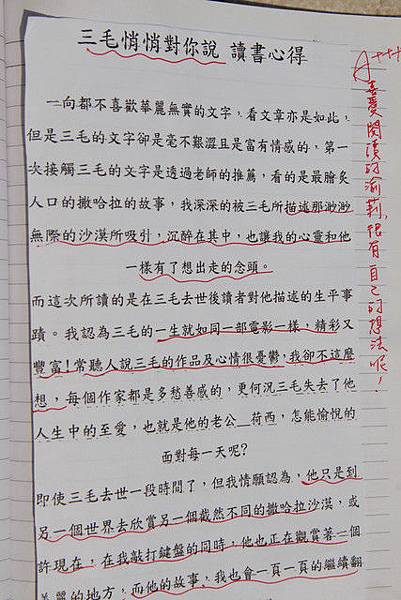 三毛悄悄對你說 讀書心得
一向都不喜歡華麗無實的文字，看文章亦是如此，
但是三毛的文字卻是毫不艱澀且是富有情感的，第一
次接觸三毛的文字是透過老師的推薦，看的是最膾炙
人口的撒哈拉的故事，我深深的被三毛所描述那渺渺
無際的沙漠所吸引，沉醉在其中，也讓我的心靈和他
一樣有了想出走的念頭。
而這次所讀的是在三毛去世後讀者對他描述的生平事
蹟。我認為三毛的一生就如同一部電影一樣，精彩又
豐富！常聽人說三毛的作品及心情很憂鬱，我卻不這麼
想，每個作家都是多愁善感的，更何況三毛失去了他
人生中的至愛，也就是他的老公__荷西，怎能愉悅的
面對每一天呢?
即使三毛去世一段時間了，但我情願認為，他只是到
另一個世界去欣賞另一個截然不同的撒哈拉沙漠，或
許現在，在我敲打鍵盤的同時，他也正在觀賞著一個
美麗的地方，而他的故事，我也會一頁一頁的繼續翻
A+++
喜愛閱讀的渝莉，很有自己的想法呢！